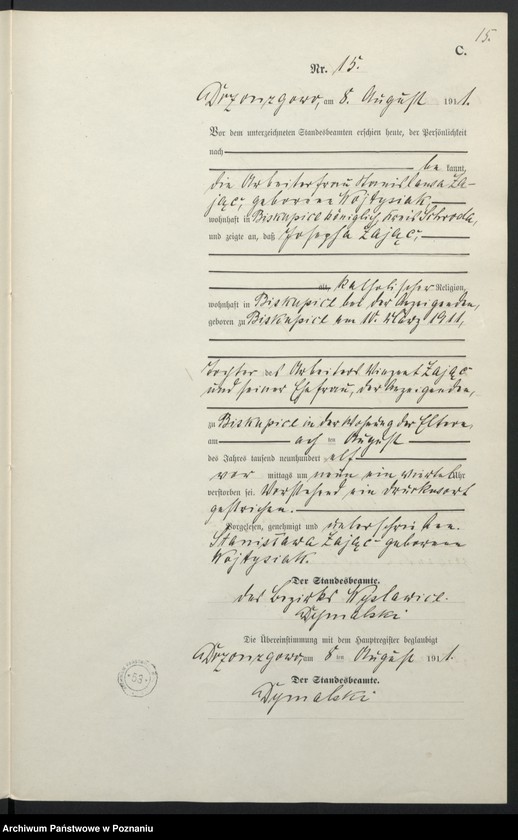 15.
C.
Nr. 15.
am 8. August 1911.
Vor dem unterzeichneten Standesbeamten erschien heute, der Persönlichkeit
nach
be kannt,
die Arbeiterfrau Stanislawa Za-
jąc, geborene Wojtysiak,
wohnhaft in Biskupice königlich, Kreis Schroda,
und zeigte an, daß Josepha Zając,
alt, katholischer Religion,
wohnhaft in Biskupice bei der Anzeigenden,
geboren zu Biskupice am 10. März 1911,
Tochter des Arbeiters Vinzent Zając
und seiner Ehefrau, der Anzeigenden,
zu Biskupice in der Wohnung der Eltern,
am acht ten August
des Jahres tausend neunhundert elf
vor mittags um neun ein viertel Uhr
verstorben sei. Vorstehend ein Druckwort
gestrichen.
Vorgelesen, genehmigt und unterschrieben.
Stanisława Zając geborene
Wojtysiak.
Der Standesbeamte.
des Bezirks
Dymalski
Die Übereinstimmung mit dem Hauptregister beglaubigt
am 8 ten August 1911.
Der Standesbeamte.
Dymalski
53
Archiwum Państwowe w Poznaniu